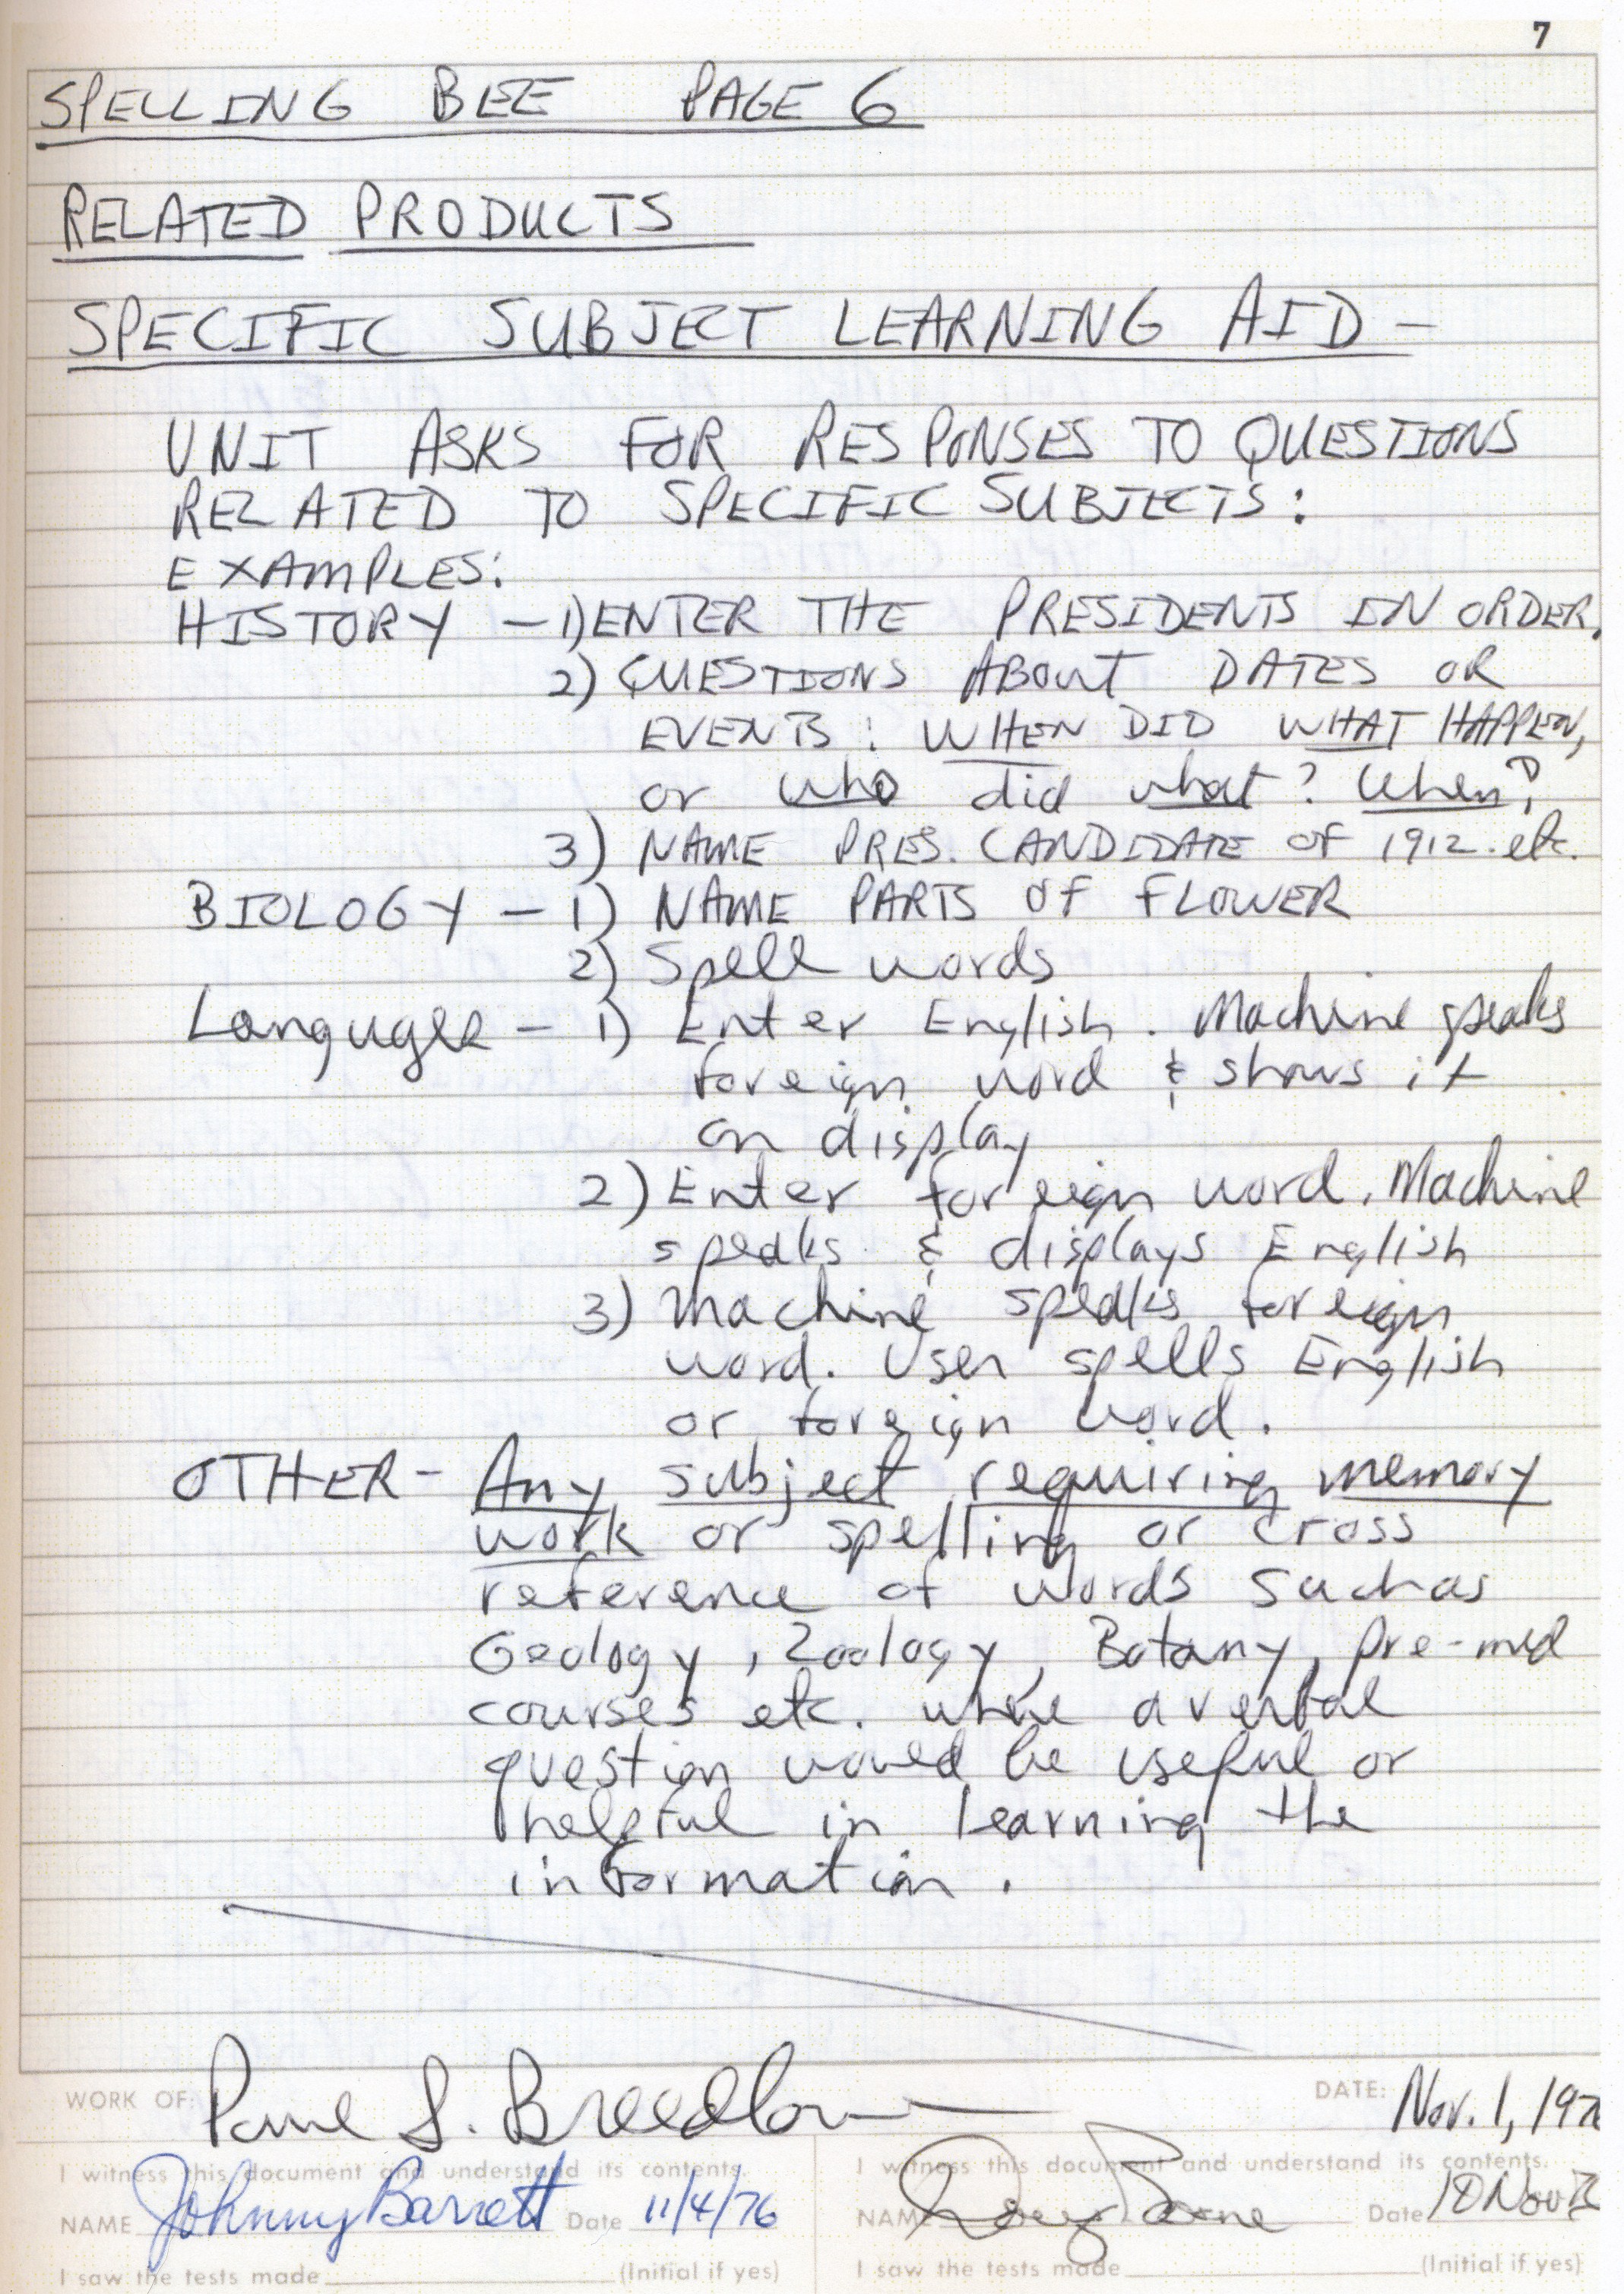 7
SPELLING BEE PAGE 6
RELATED PRODUCTS
SPECIFIC SUBJECT LEARNING AID -
UNIT ASKS FOR RESPONSES TO QUESTIONS
RELATED TO SPECIFIC SUBJECTS:
EXAMPLES:
HISTORY - 1) ENTER THE PRESIDENTS IN ORDER.
2) QUESTIONS ABOUT DATES OR
EVENTS: WHEN DID WHAT HAPPEN,
or who did what? When?
3) NAME PRES. CANDIDATE OF 1912. etc.
BIOLOGY - 1) NAME PARTS OF FLOWER
2) Spell words
Langugee - 1) Enter English. Machine speaks
foreign word & shows it
on display
2) Enter foreign word. Machine
speaks & displays English
3) Machine speaks foreign
word. User spells English
or foreign word.
OTHER - Any subject requiring memory
work or spelling or cross
reference of words such as
Geology, Zoology, Botany, pre-med
courses etc. where a verbal
question would be useful or
helpful in learning the
information.
WORK OF: Paul S. Breedlove DATE: Nov. 1, 197
I witness this document and understand its contents. I witness this document and understand its contents.
NAME Johnny Barrett Date 11/4/76 NAME Date 10 Nov 76
I saw the tests made (Initial if yes) I saw the tests made (Initial if yes)